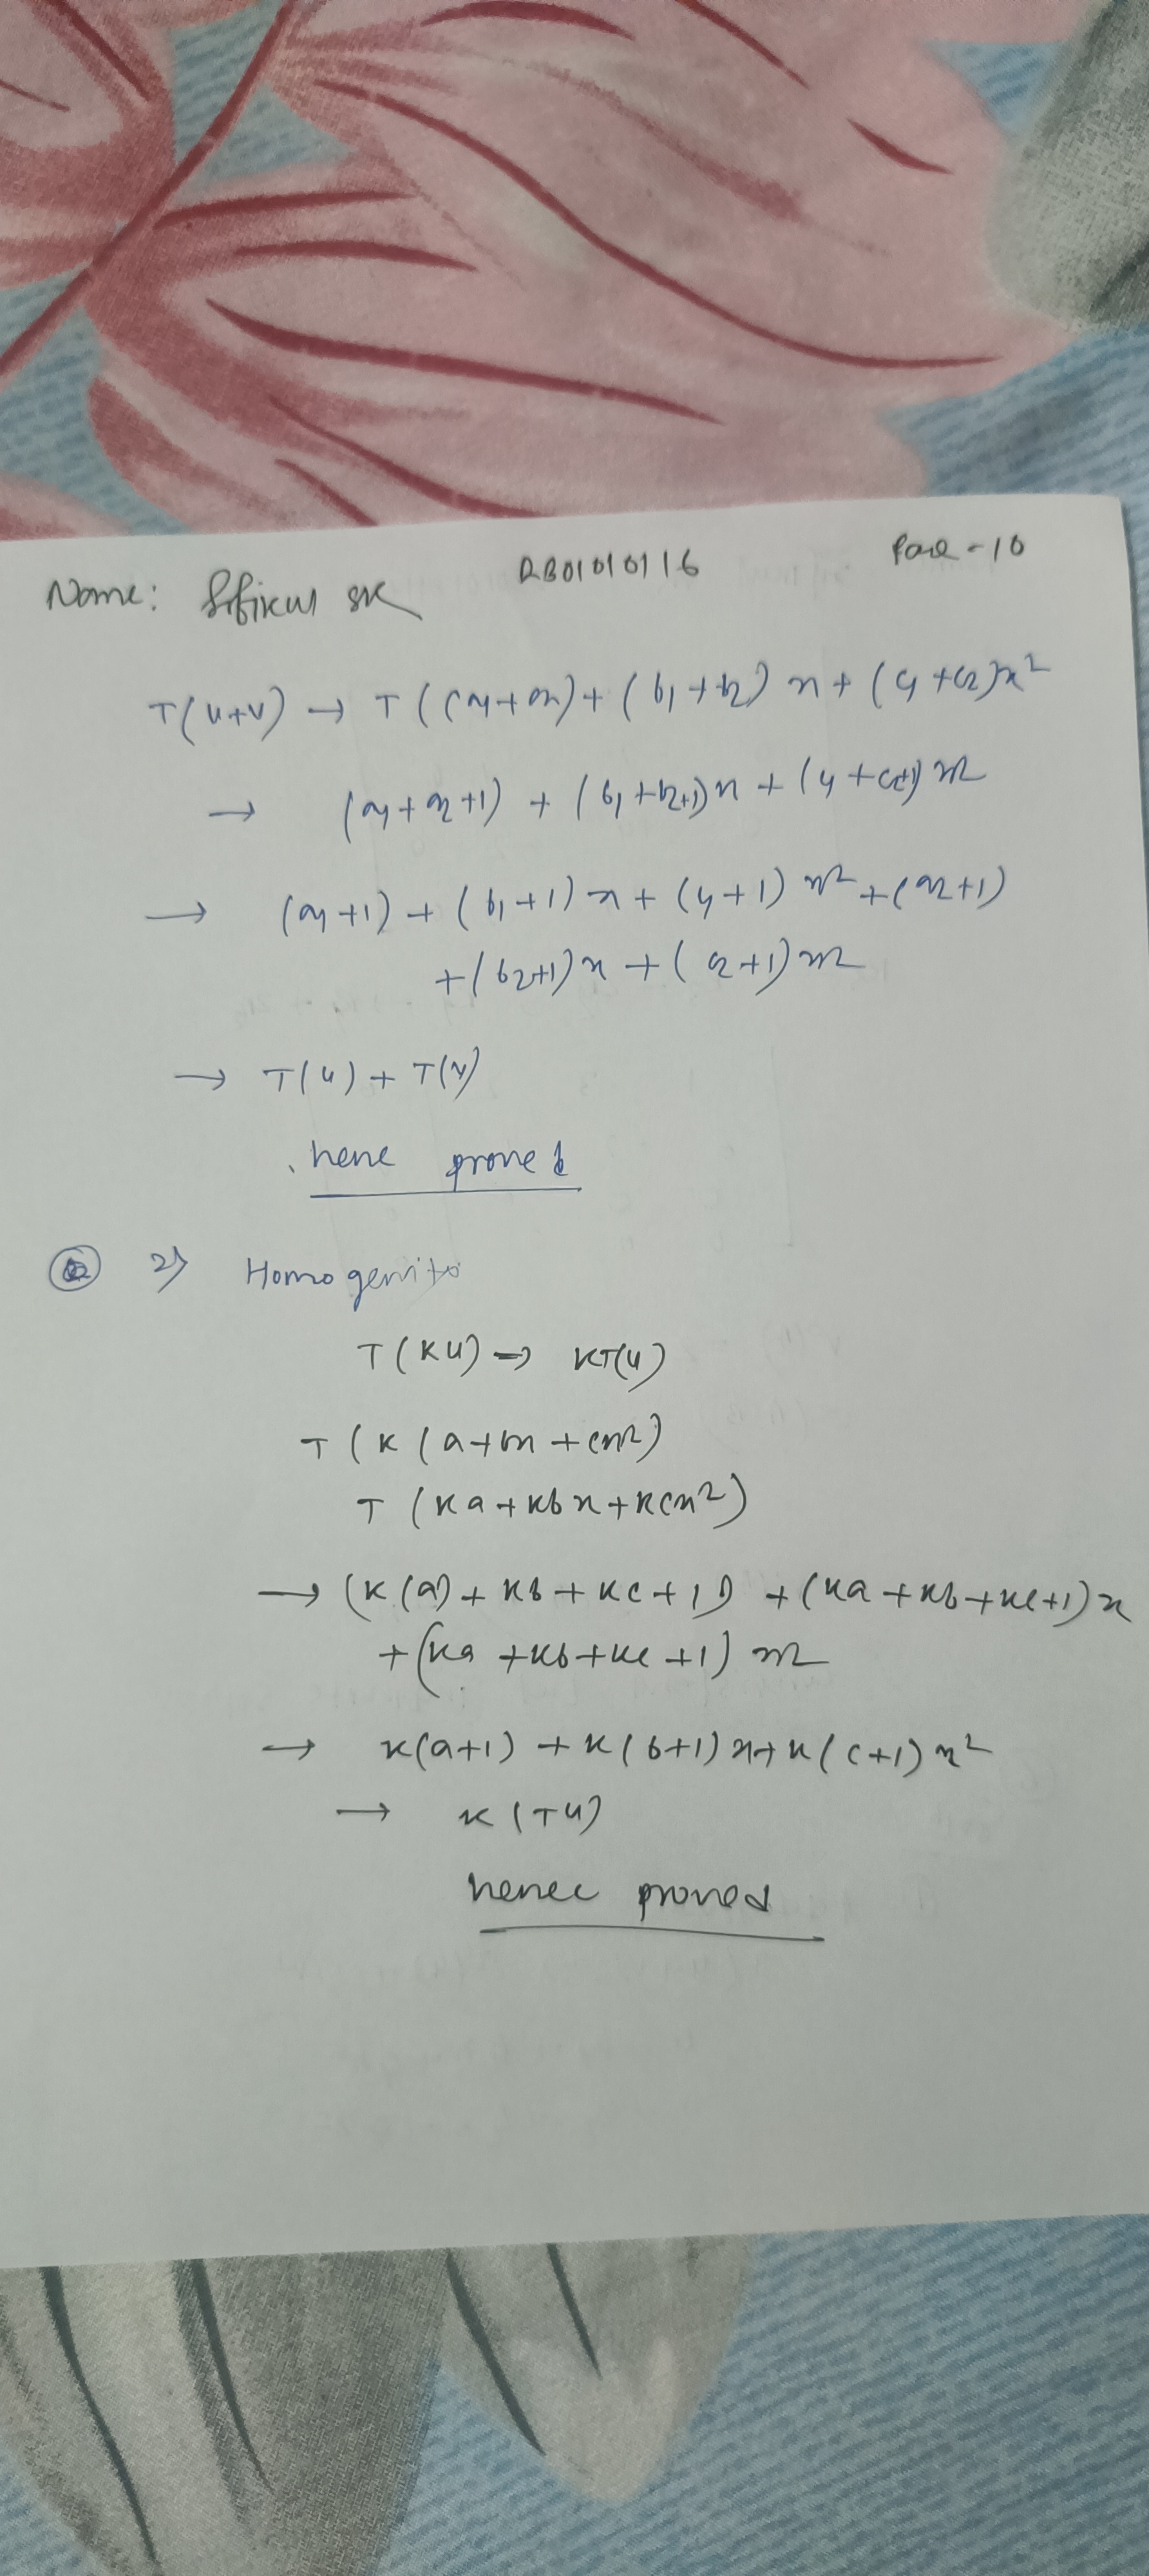 Name: SK
RB0101016
Page - 10
T(u+v) → T((a1+a2)+(b1+b2)x+(c1+c2)x²
→ (a1+a2+1) + (b1+b2+1)x + (c1+c2+1)x²
→ (a1+1) + (b1+1)x + (c1+1)x² + (a2+1)
+(b2+1)x + (c2+1)x²
→ T(u) + T(v)
hence proved
2) Homogenito
T(Ku) → KT(u)
T(K(a+bx+cx²)
T(Ka+Kbx+Kcx²)
→ (K(a)+Kb+Kc+1)) + (Ka+Kb+Kc+1)x
+(Ka+Kb+Kc+1)x²
→ K(a+1)+K(b+1)x+K(c+1)x²
→ K(Tu)
hence proved